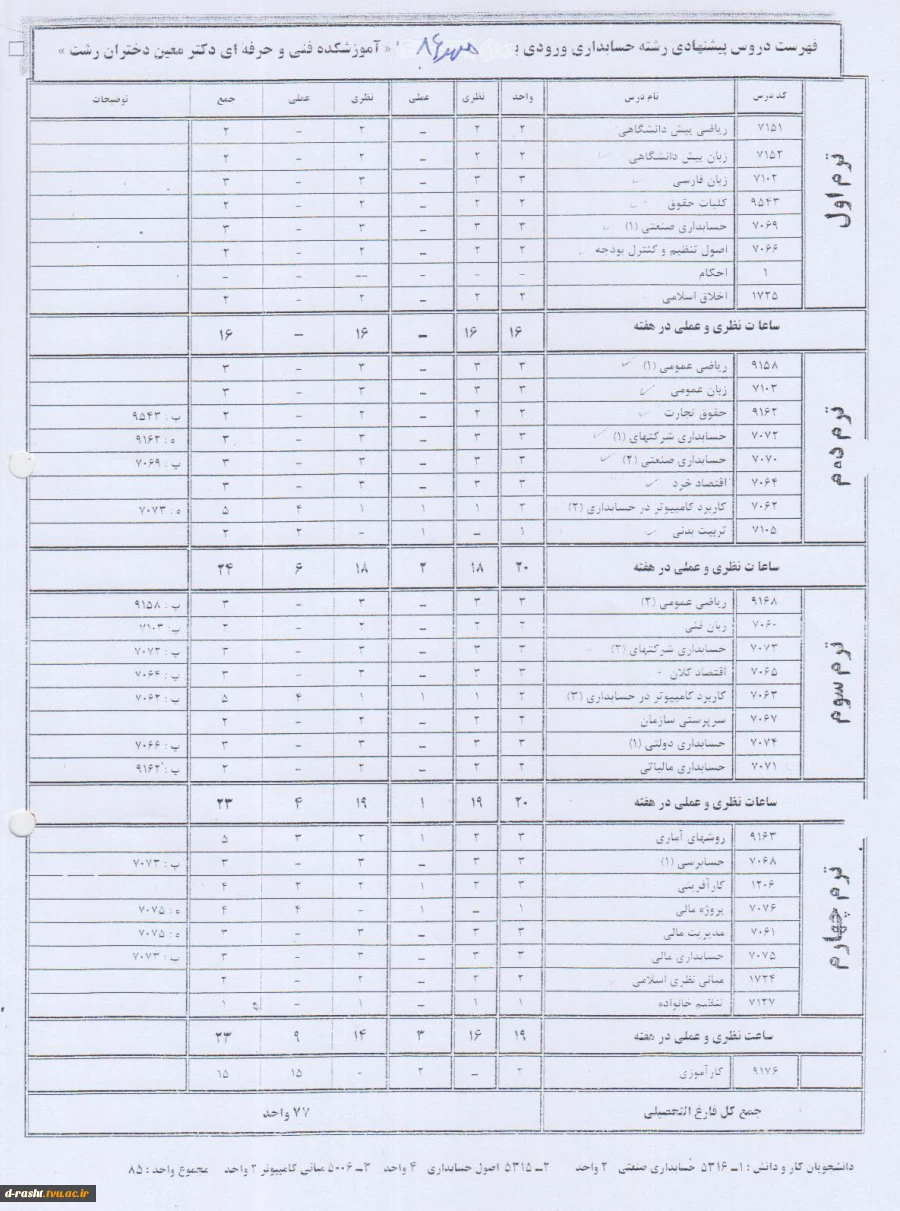 فهرست دروس پیشنهادی رشته حسابداری ورودی مهر ۸۶ « آموزشکده فنی و حرفه ای دکتر معین دختران رشت »
کد درس نام درس واحد نظری عملی نظری عملی جمع توضیحات
ترم اول
۷۱۵۱ ریاضی پیش دانشگاهی ۲ ۲ – ۲ – ۲
۷۱۵۲ زبان پیش دانشگاهی ۲ ۲ – ۲ – ۲
۷۱۰۲ زبان فارسی ۳ ۳ – ۳ – ۳
۹۵۴۳ کلیات حقوق ۲ ۲ – ۲ – ۲
۷۰۶۹ حسابداری صنعتی (۱) ۳ ۳ – ۳ – ۳
۷۰۶۶ اصول تنظیم و کنترل بودجه ۲ ۲ – ۲ – ۲
۱ احکام – – – -- – –
۱۷۲۵ اخلاق اسلامی ۲ ۲ – ۲ – ۲
ساعات نظری و عملی در هفته ۱۶ ۱۶ – ۱۶ – ۱۶
ترم دوم
۹۱۵۸ ریاضی عمومی (۱) ۳ ۳ – ۳ – ۳
۷۱۰۳ زبان عمومی ۳ ۳ – ۳ – ۳
۹۱۶۲ حقوق تجارت ۲ ۲ – ۲ – ۲ پ : ۹۵۴۳
۷۰۷۲ حسابداری شرکتهای (۱) ۳ ۳ – ۳ – ۳ ه : ۹۱۶۲
۷۰۷۰ حسابداری صنعتی (۲) ۳ ۳ – ۳ – ۳ پ : ۷۰۶۹
۷۰۶۴ اقتصاد خرد ۳ ۳ – ۳ – ۳
۷۰۶۲ کاربرد کامپیوتر در حسابداری (۲) ۲ ۱ ۱ ۱ ۴ ۵ ه : ۷۰۷۳
۷۱۰۵ تربیت بدنی ۱ – ۱ – ۲ ۲
ساعات نظری و عملی در هفته ۲۰ ۱۸ ۲ ۱۸ ۶ ۲۴
ترم سوم
۹۱۶۸ ریاضی عمومی (۲) ۳ ۳ – ۳ – ۳ پ : ۹۱۵۸
۷۰۶۰ زبان فنی ۲ ۲ – ۲ – ۲ پ : ۷۱۰۳
۷۰۷۳ حسابداری شرکتهای (۲) ۳ ۳ – ۳ – ۳ پ : ۷۰۷۲
۷۰۶۵ اقتصاد کلان ۳ ۳ – ۳ – ۳ پ : ۷۰۶۴
۷۰۶۳ کاربرد کامپیوتر در حسابداری (۳) ۲ ۱ ۱ ۱ ۴ ۵ پ : ۷۰۶۲
۷۰۶۷ سرپرستی سازمان ۲ ۲ – ۲ – ۲
۷۰۷۴ حسابداری دولتی (۱) ۳ ۳ – ۳ – ۳ پ : ۷۰۶۶
۷۰۷۱ حسابداری مالیاتی ۲ ۲ – ۲ – ۲ پ : ۹۱۶۲
ساعات نظری و عملی در هفته ۲۰ ۱۹ ۱ ۱۹ ۴ ۲۳
ترم چهارم
۹۱۶۳ روشهای آماری ۳ ۲ ۱ ۲ ۳ ۵
۷۰۶۸ حسابرسی (۱) ۳ ۳ – ۳ – ۳ پ : ۷۰۷۳
۱۲۰۶ کارآفرینی ۳ ۲ ۱ ۲ ۲ ۴
۷۰۷۶ پروژه مالی ۱ – ۱ – ۴ ۴ ه : ۷۰۷۵
۷۰۶۱ مدیریت مالی ۳ ۳ – ۳ – ۳ ه : ۷۰۷۵
۷۰۷۵ حسابداری مالی ۳ ۳ – ۳ – ۳ پ : ۷۰۷۳
۱۷۲۴ مبانی نظری اسلامی ۲ ۲ – ۲ – ۲
۷۱۲۷ تنظیم خانواده ۱ ۱ – ۱ – ۱
ساعت نظری و عملی در هفته ۱۹ ۱۶ ۳ ۱۴ ۹ ۲۳
۹۱۷۶ کارآموزی ۲ – ۲ – ۱۵ ۱۵
جمع کل فارغ التحصیلی ۷۷ واحد
دانشجویان کار و دانش : ۱ـ ۵۳۱۶ حسابداری صنعتی ۲ واحد ۲ـ ۵۳۱۵ اصول حسابداری ۴ واحد ۳ـ ۵۰۰۶ مبانی کامپیوتر ۲ واحد مجموع واحد : ۸۵
d-rasht.tvu.ac.ir